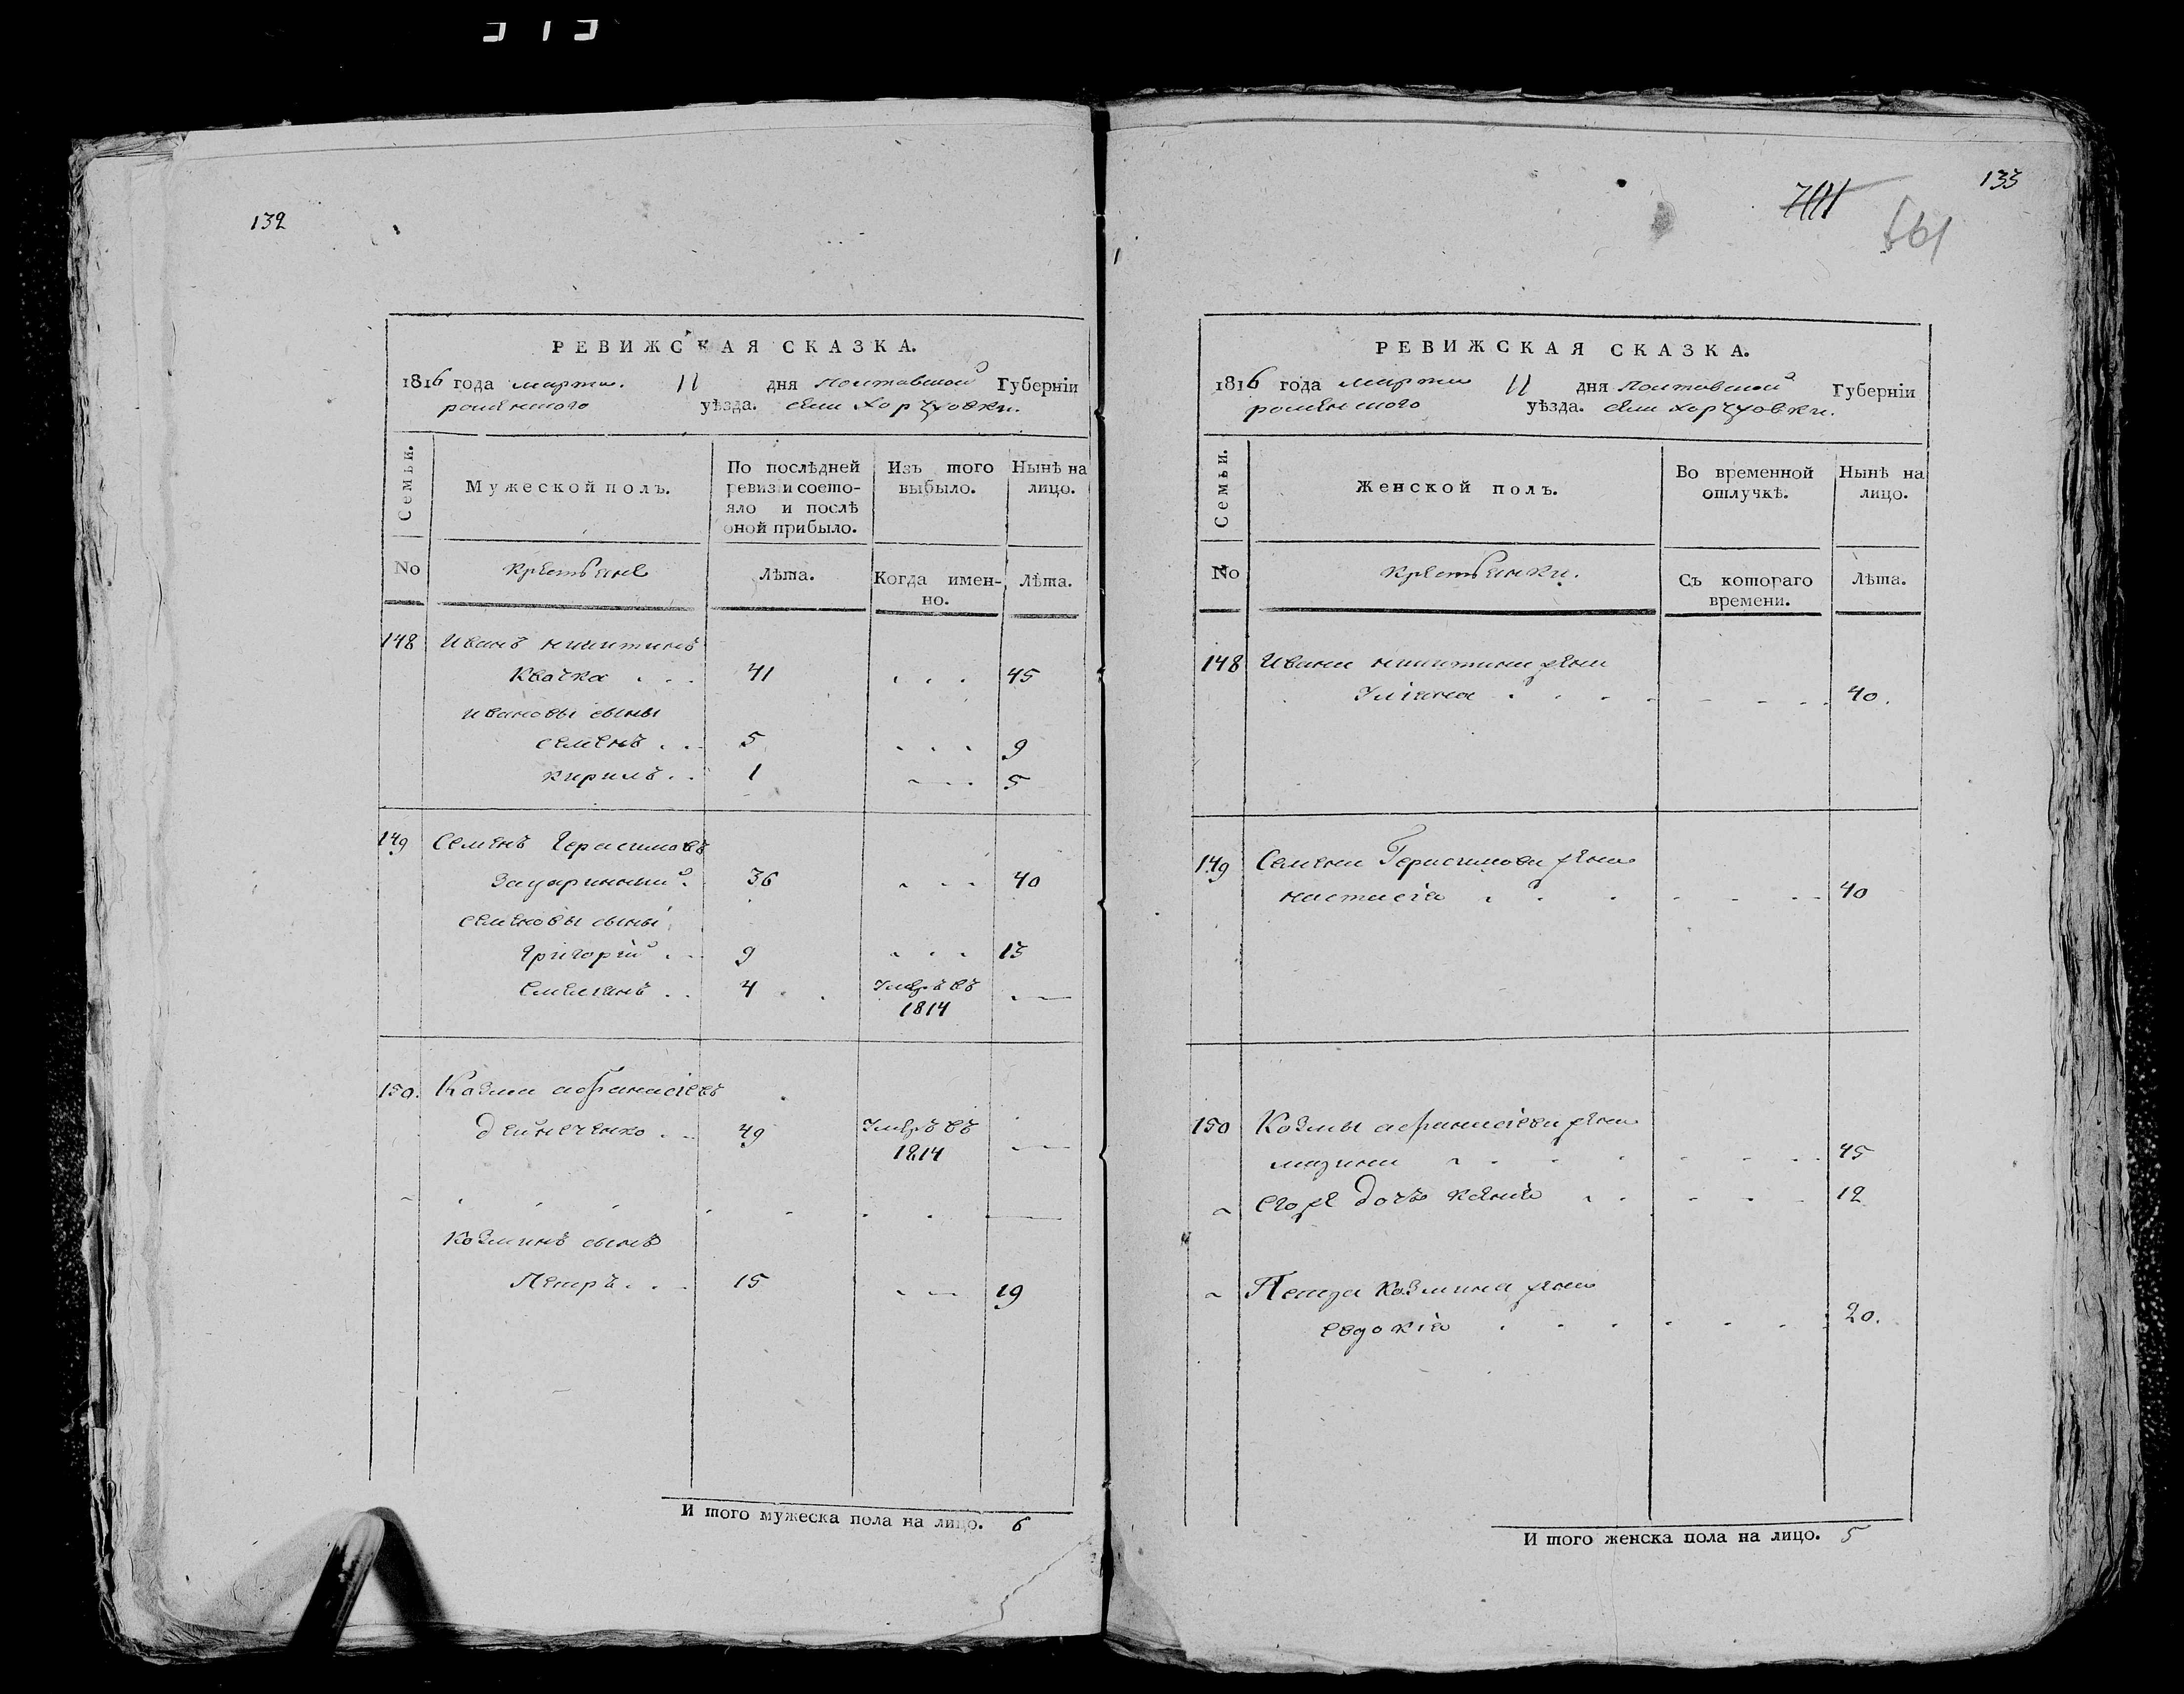 132
РЕВИЖСКАЯ СКАЗКА.
1816 года марта 11 дня Полтавской Губерніи
роменского уѣзда. села
Семьи.
Мужеской полъ.
По послѣдней ревизіи состояло и послѣ оной прибыло.
Изъ того выбыло.
Нынѣ на лицо.
No
крестьяне
Лѣта.
Когда именно.
Лѣта.
148 Иванъ никитинъ
Квачка . . . 41 . . . 45
ивановы сыны
семенъ . . 5 . . . 9
кирилъ . . 1 . . . 5
149 Семенъ Герасимовъ
36 . . . 40
семеновы сыны
Григорій . . 9 . . . 13
Емелианъ . . 4 умеръ въ 1814 —
150. Козма афанасіевъ
дейнеченко . . 49 умеръ въ 1814 —
Козминъ сынъ
Петръ . . . 15 19
И того мужеска пола на лицо. 6
133
701
561
РЕВИЖСКАЯ СКАЗКА.
1816 года марта 11 дня Полтавской Губерніи
роменского уѣзда. села
Семьи.
Женской полъ.
Во временной отлучкѣ.
Нынѣ на лицо.
No
крестьянки.
Съ котораго времени.
Лѣта.
148 Ивана никитина жена
Улияна . . . . 40.
149 Семена Герасимова жена
настасія . . . . 40
150 Козмы афанасіева жена
марина . . . . 45
его же дочь ксенія . . . . 12
Петра Козмина жена
евдокія . . . . 20.
И того женска пола на лицо. 5